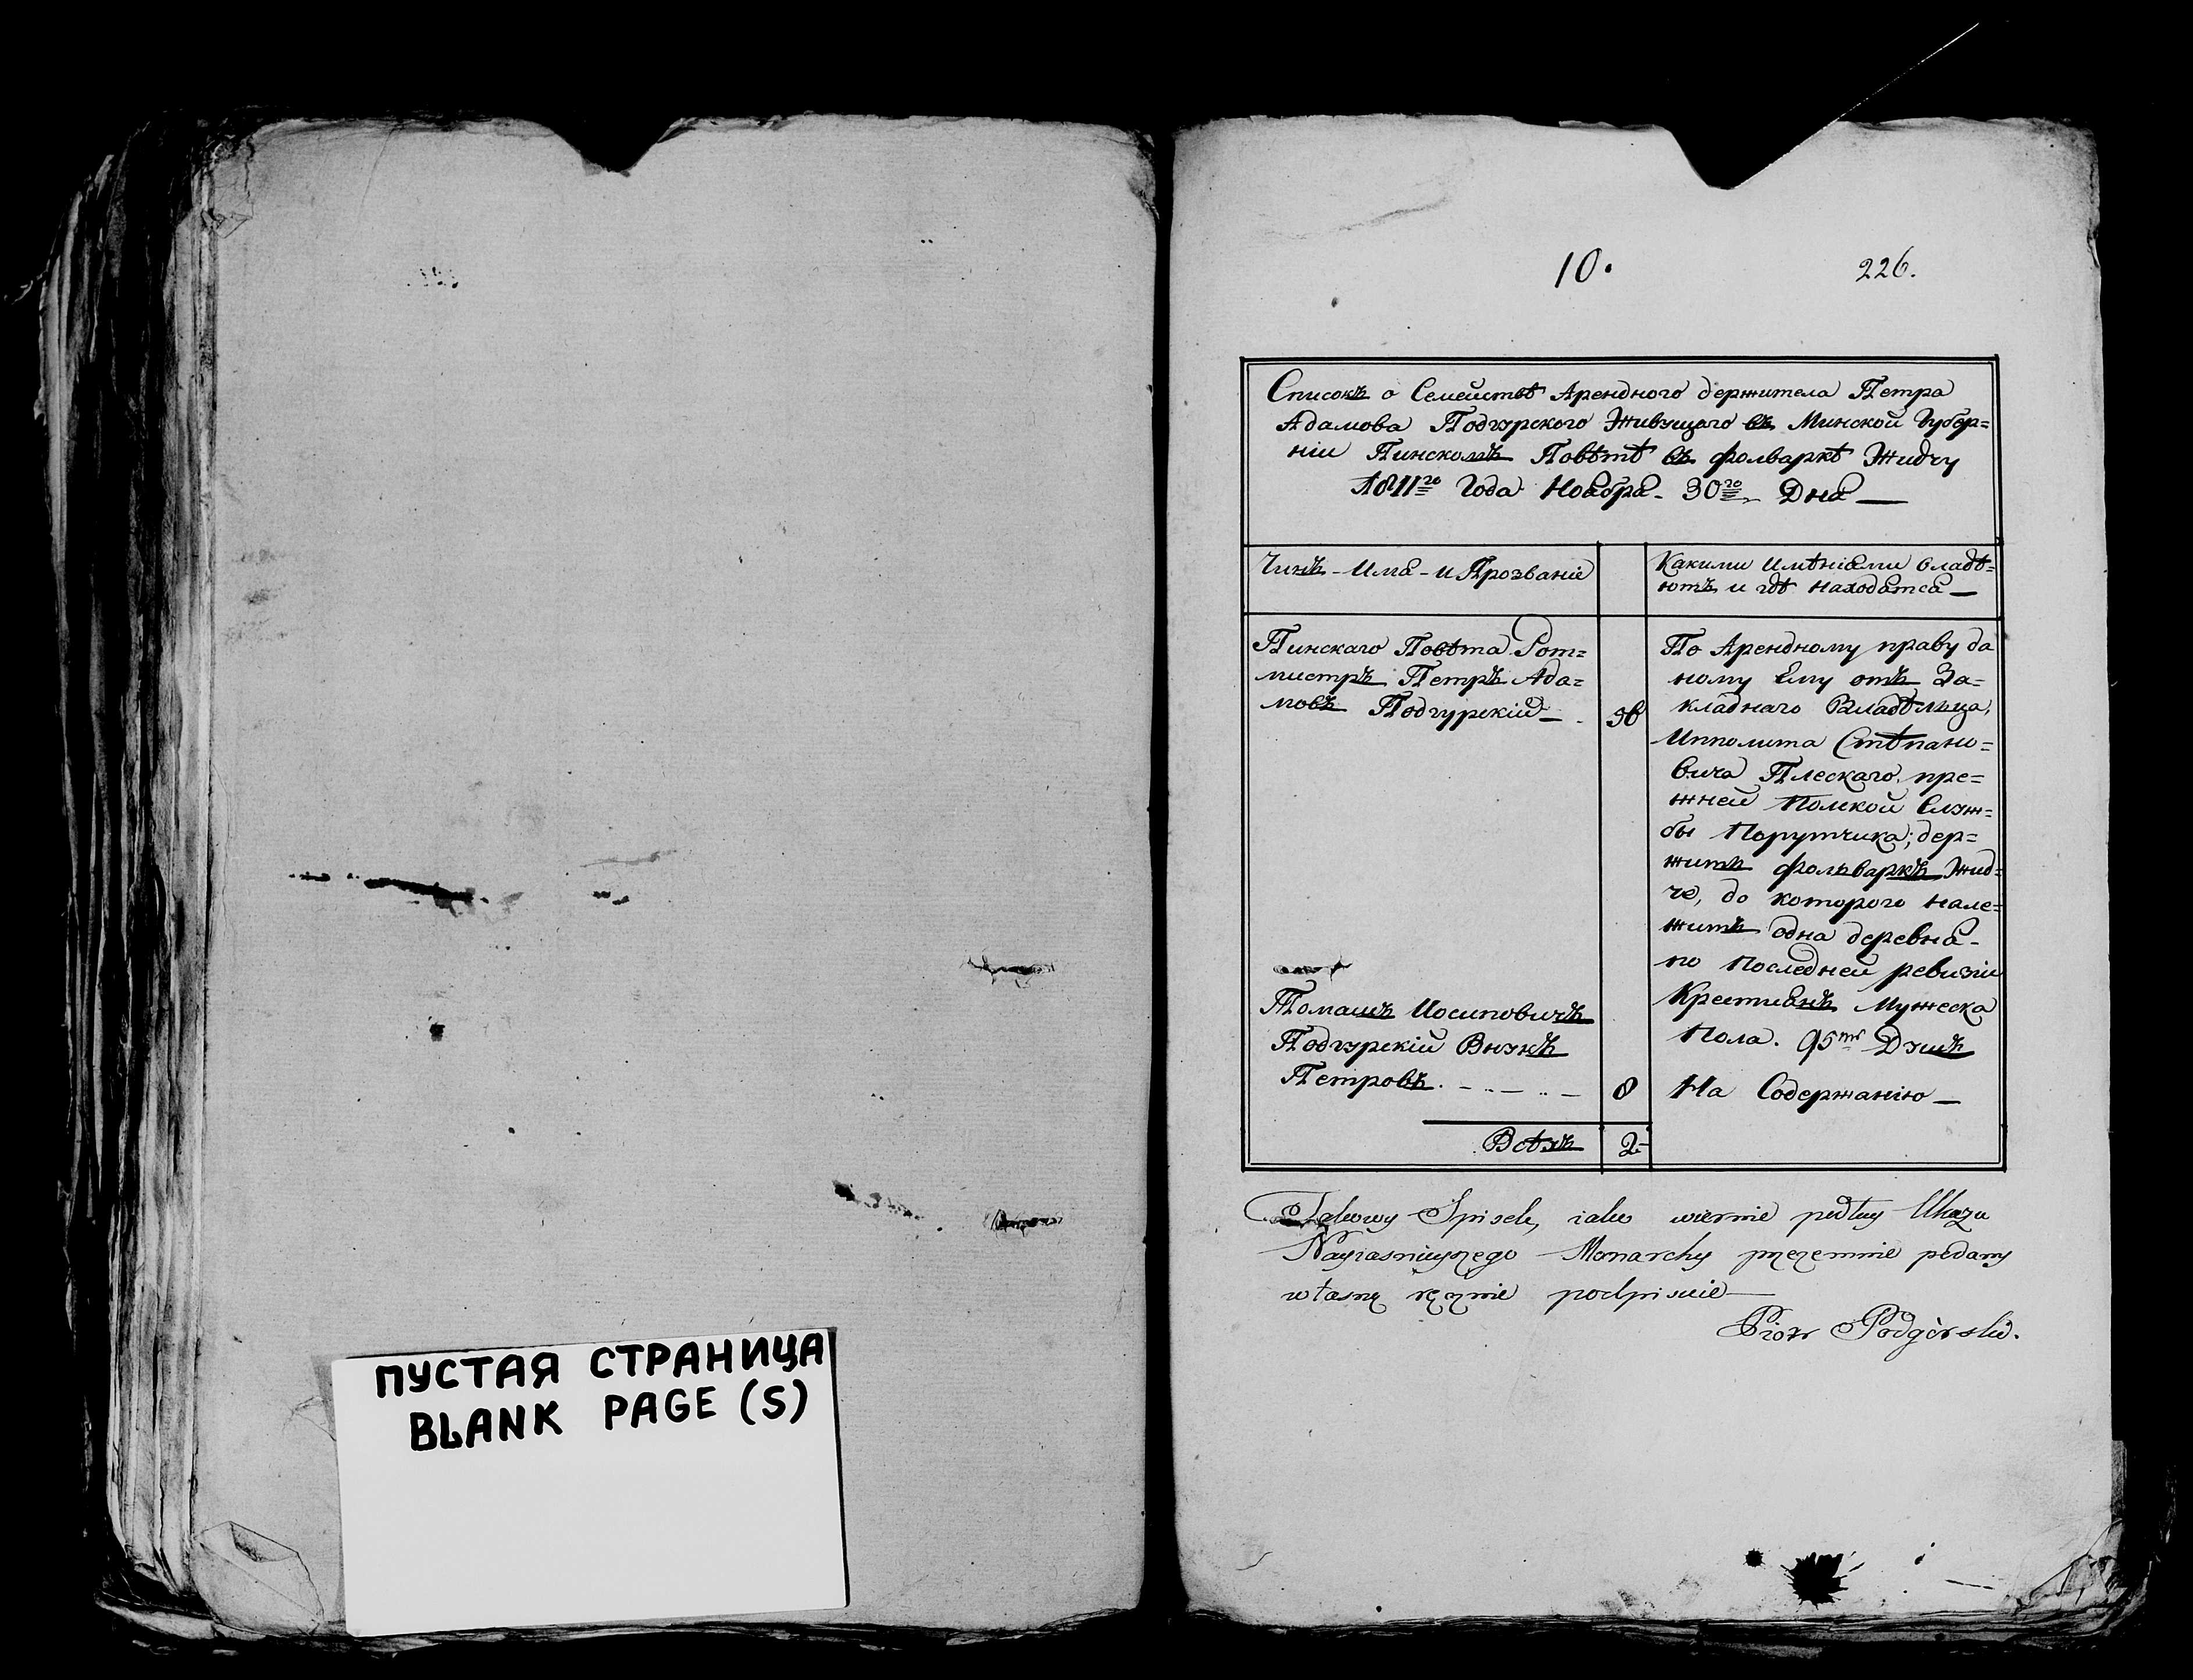 ПУСТАЯ СТРАНИЦА
BLANK PAGE (S)
10.
226.
Списокъ о Семействѣ Арендного держителa Петра
Адамова Подгурского Живущаго въ Минской Губер=
ніи Пинскомъ Повѣтѣ въ фолваркѣ Жидчу
1811го Года Ноабра 30го Дна
Чинъ - Има - и Прозваніе
Какими Имѣніами владѣ=
ютъ и гдѣ находатса
Пинскаго Повѣта Рот=
мистръ Петръ Ада=
мовъ Подгурскій
По Арендному праву да
ному Ему отъ За=
кладнаго Владѣльца,
Ипполита Стѣпано=
вича Плескаго, пре=
жней Полской Служ=
бы Порутчика; дер=
житъ фольваркъ Жид=
че, до которого нале=
житъ одна деревна
по последней ревизіи
Крестианъ Мужеска
Пола. 95ть Душъ
Томашъ Иосиповичъ
Подгурскій Внукъ
Петровъ.
8
На Содержанію
Всѣхъ
2
Takowy Spisek, iako wiernie podług Ukazu
Nayiasnieyszego Monarchy przezemnie podany
własną ręcznie podpisuie
Piotr Podgórski.